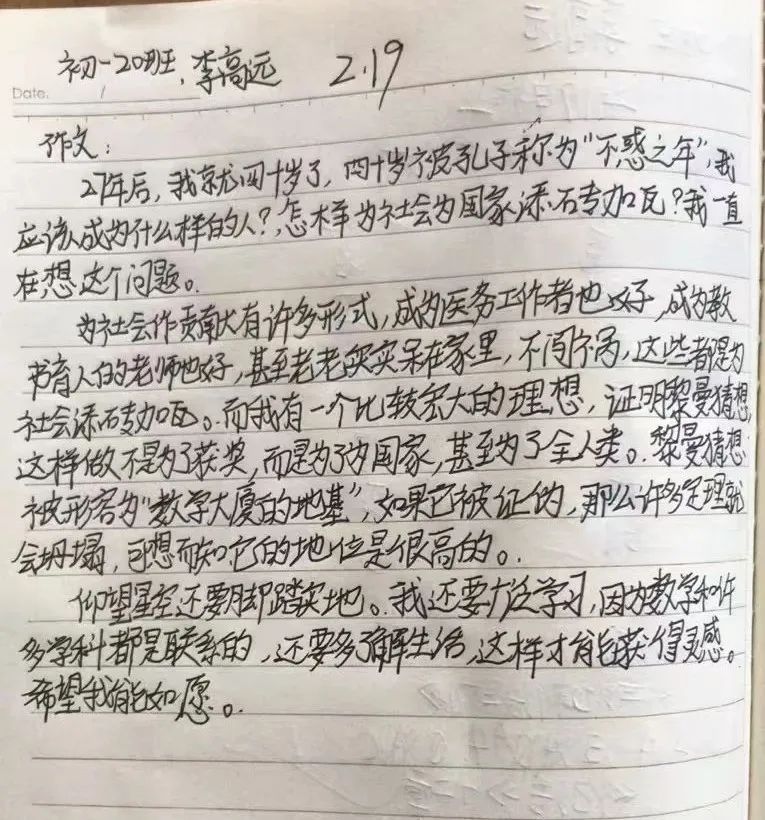 初一20班, 李高远 2.19
Date. /
作文:
27年后,我就四十岁了,四十岁被孔子称为“不惑之年”,我
应该成为什么样的人?怎样为社会为国家添石专加瓦?我一直
在想这个问题。
为社会作贡献有许多形式,成为医务工作者也好,成为教
书育人的老师也好,甚至老老实实呆在家里,不闯祸,这些都是为
社会添砖加瓦。而我有一个比较宏大的理想,证明黎曼猜想,
这样做不是为了获奖,而是为了为国家,甚至为了全人类。黎曼猜想
被形容为“数学大厦的地基”,如果它被证伪,那么许多定理就
会坍塌,可想而知它的地位是很高的。
仰望星空还要脚踏实地。我还要广泛学习,因为数学和许
多学科都是联系的,还要多了解生活,这样才能获得灵感。
希望我能如愿。